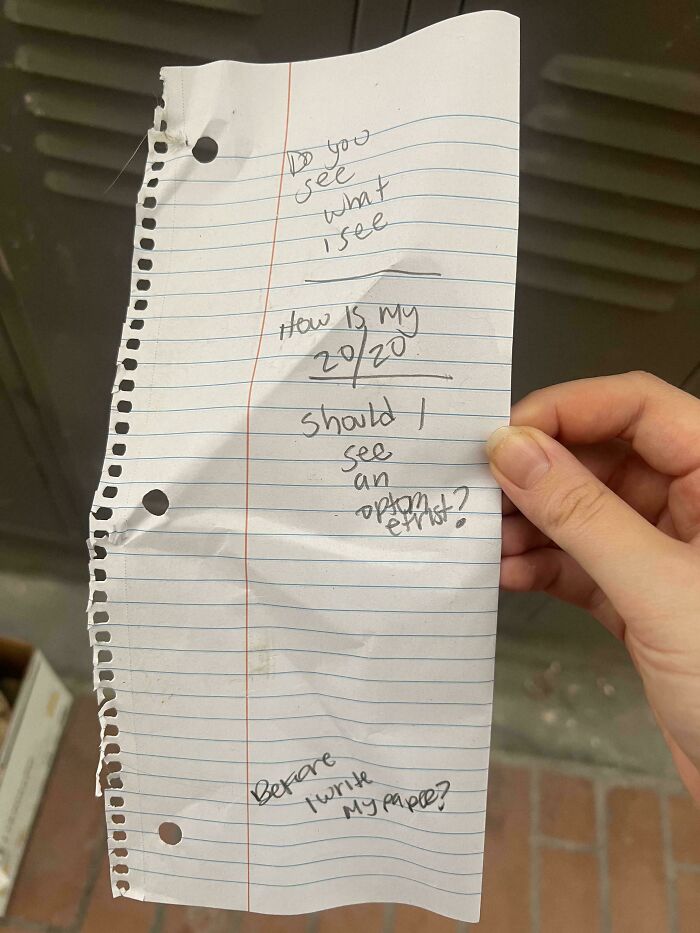 Do you
see
what
i see
How is my
20/20
should I
see
an
optom
etrist?
Before
I write
My paper?